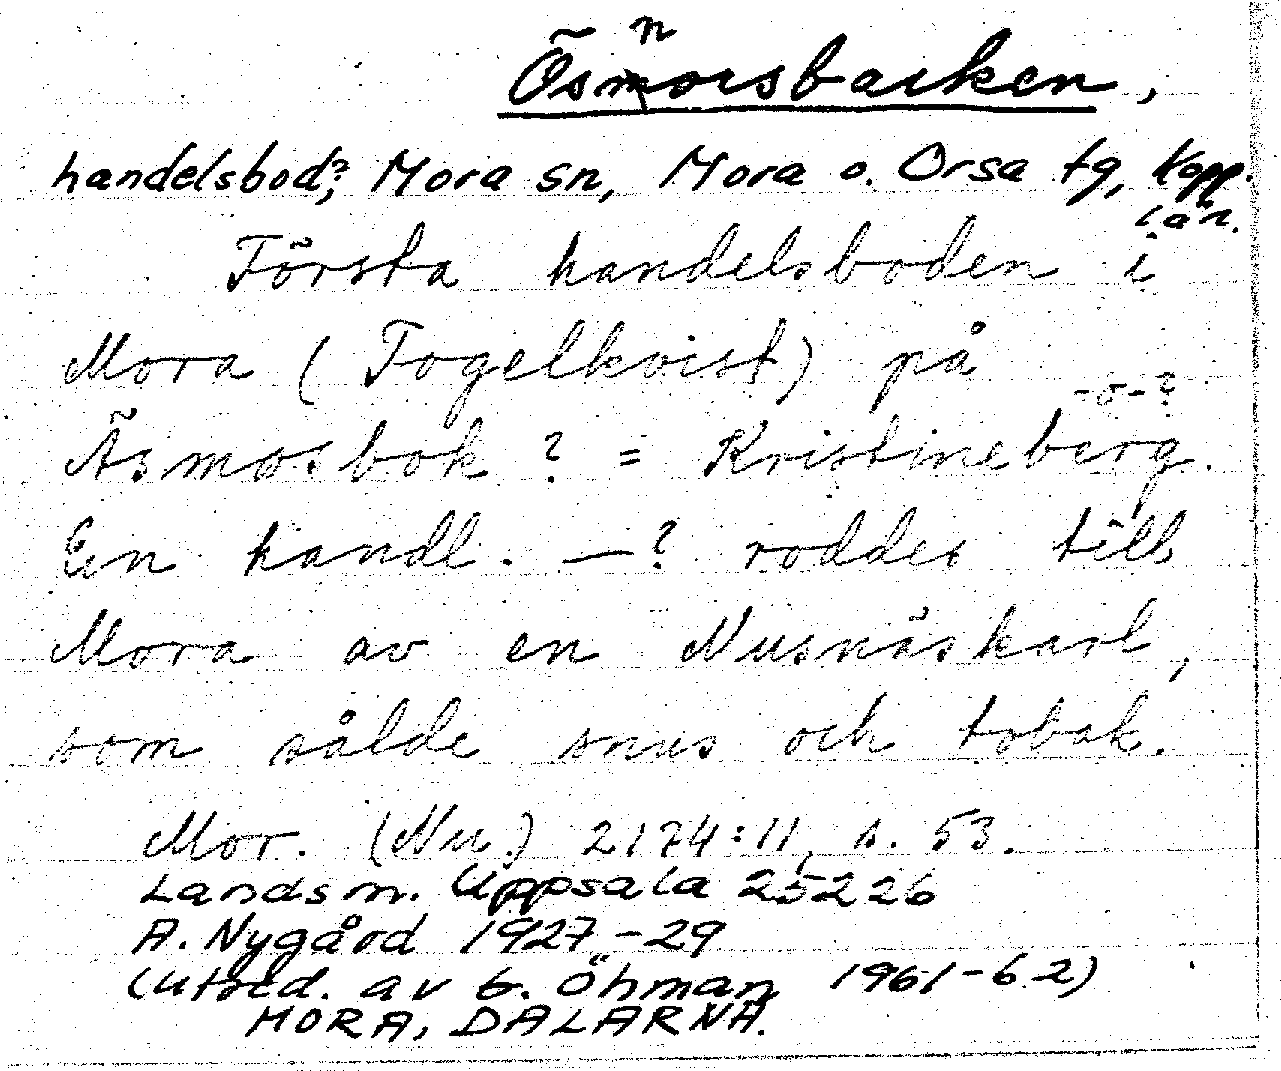 Õsmorsbacken,
n
handelsbod?; Mora sn, Mora o. Orsa tg, Kopp.
län.
Första handelsboden i
Mora (Fogelkvist) på
-o-?
Ãsmosbok ? = Kristineberg.
En handl. —? roddes till
Mora av en Nusnäskarl,
som sålde snus och tobak.
Mor. (Nu.) 2174:11, s. 53.
Landsm. Uppsala 25226
A. Nygård 1927-29
(utred. av G. Öhman 1961-62)
MORA, DALARNA.